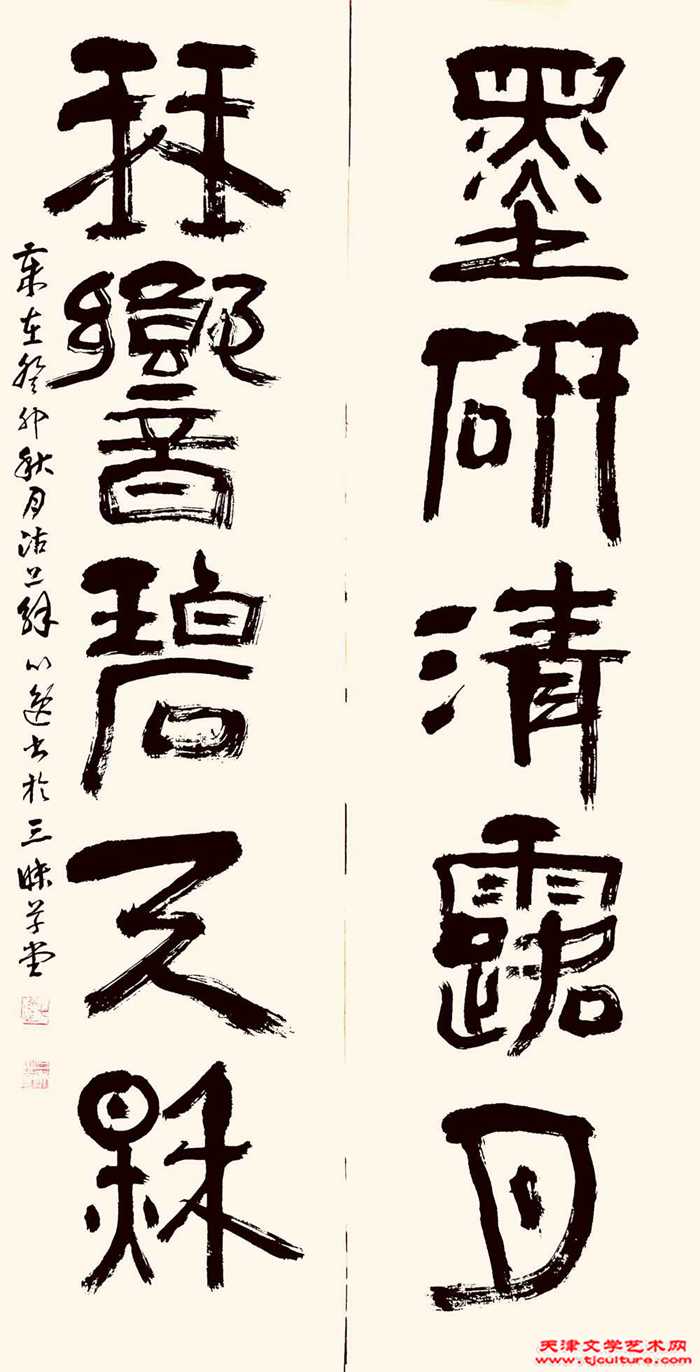 墨研清露月
琴響碧天秋
歲在癸卯秋月沽上心逸书於三昧草堂
天津文学艺术网
www.tjculture.com